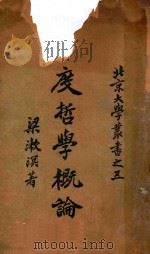 北京大學叢書之三
度哲學概論
梁漱溟著
www.mtoou.info turuhi.com